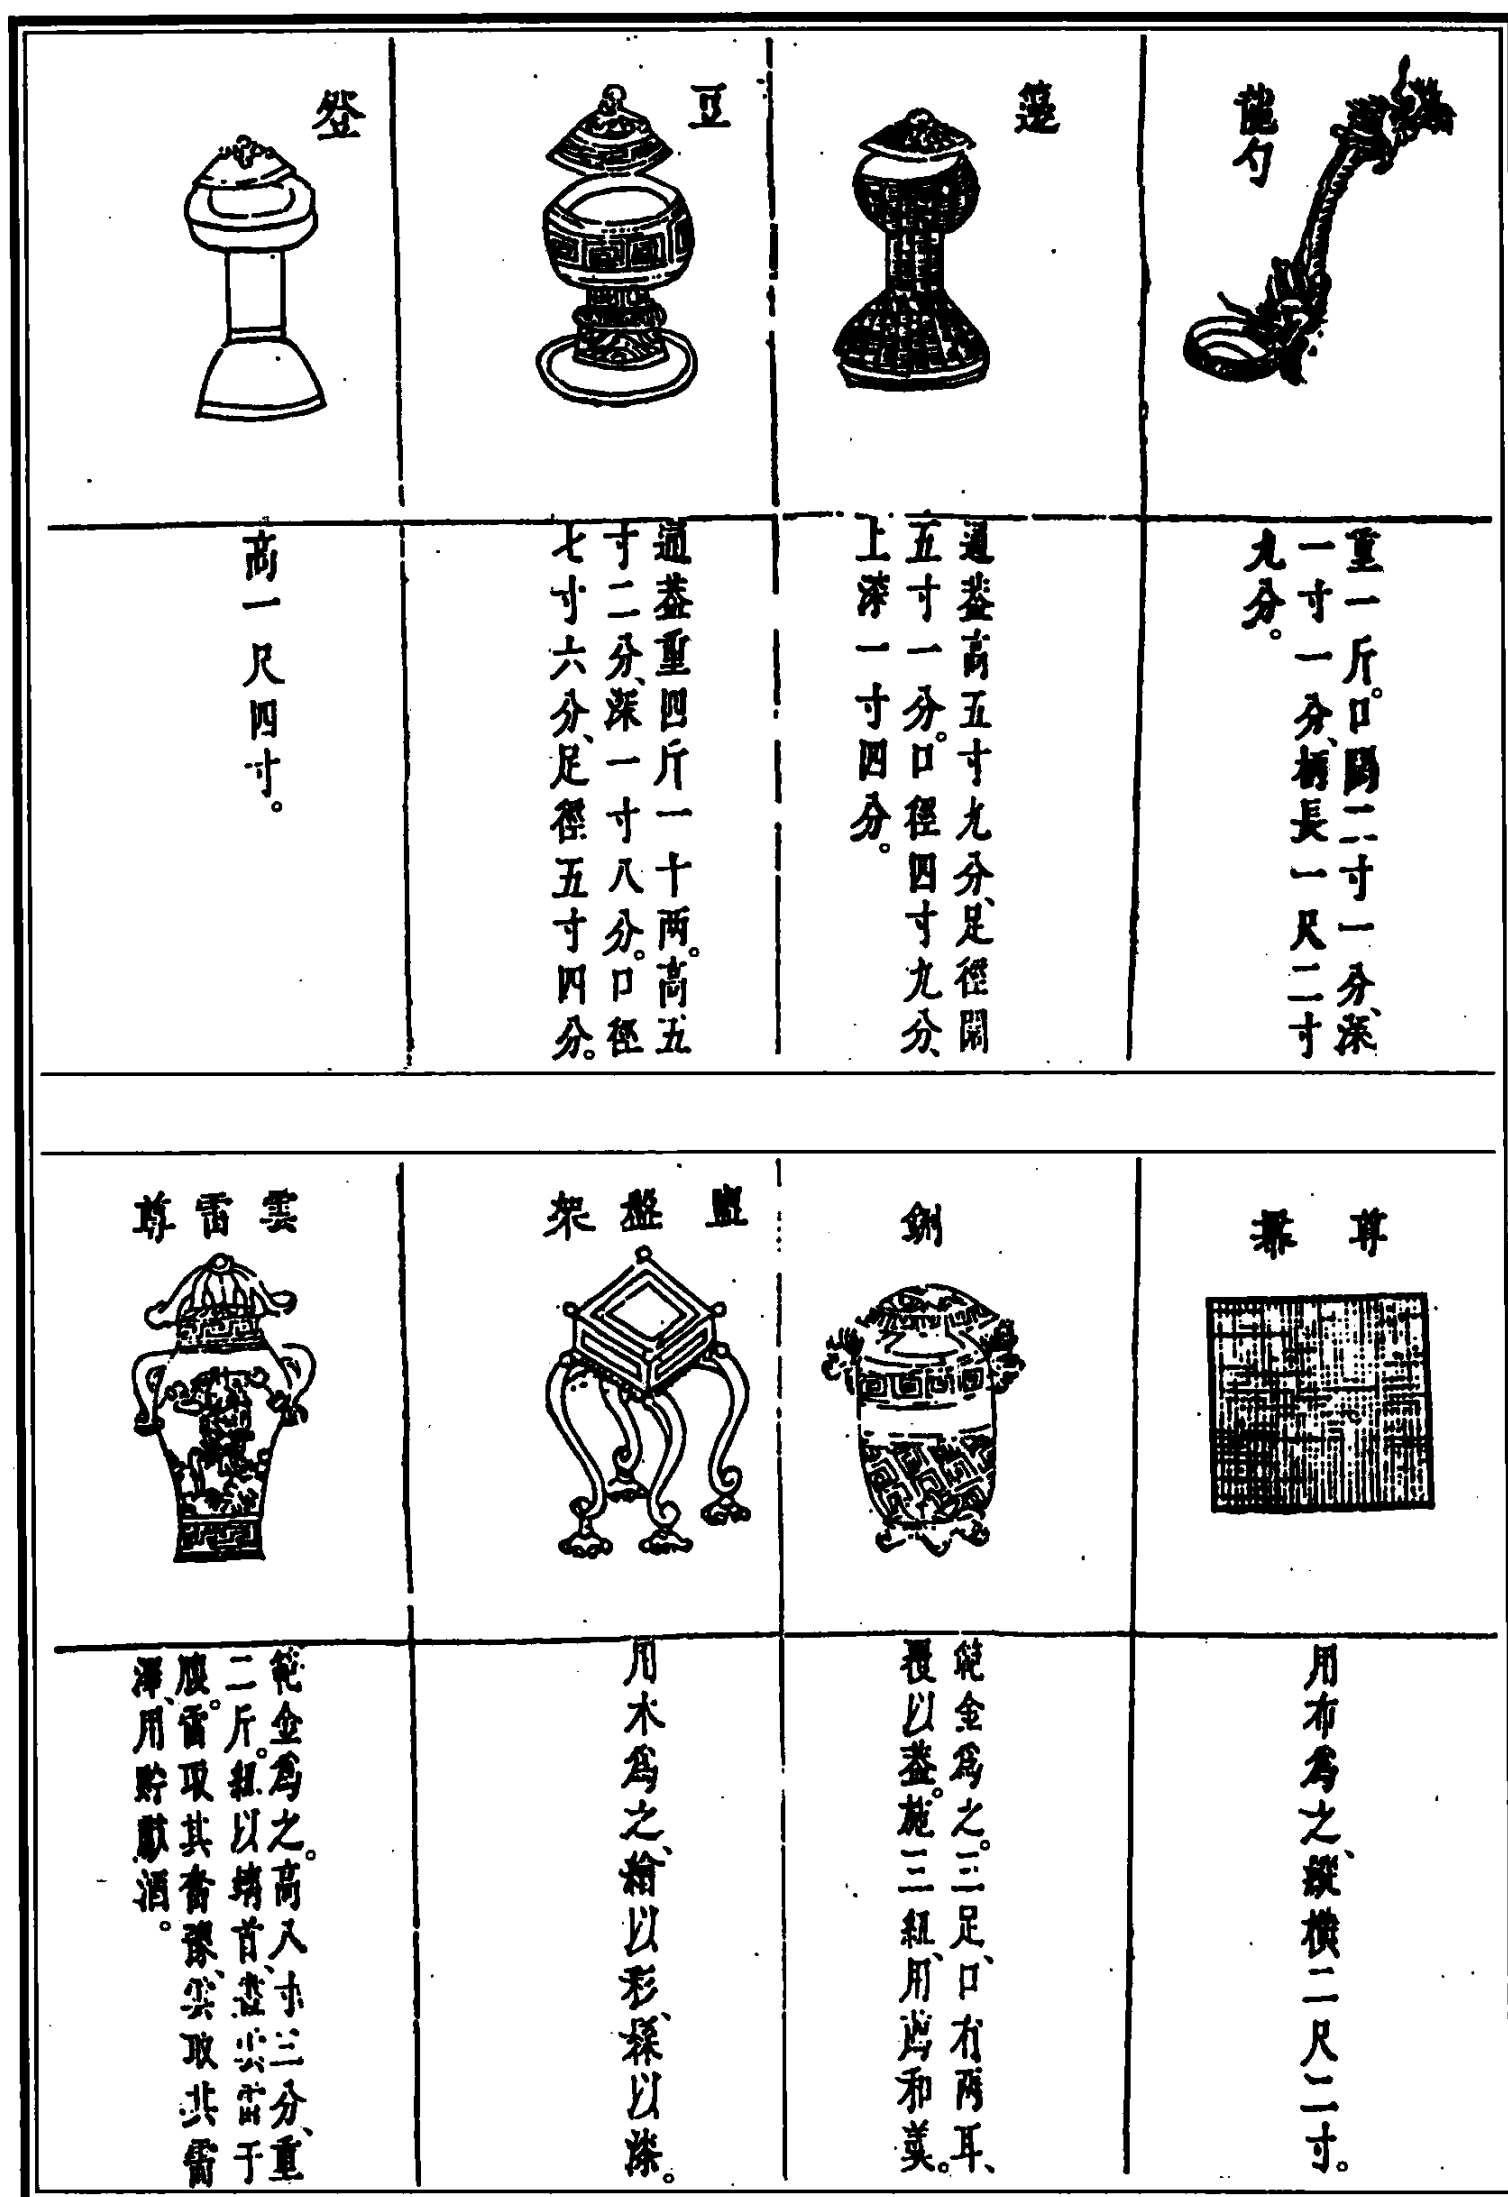 龍勺
重一斤。口闊二寸一分、深
一寸一分、柄長一尺二寸
九分。
籩
通蓋高五寸九分、足徑闊
五寸一分。口徑四寸九分、
上深一寸四分。
豆
通蓋重四斤一十兩。高五
寸二分、深一寸八分。口徑
七寸六分、足徑五寸四分。
登
高一尺四寸。
尊羃
用布爲之、縱橫二尺二寸。
鉶
範金爲之。三足、口有兩耳、
覆以蓋。施三紐、用薦和羹。
盥盤架
用木爲之、繪以彩、楺以漆。
雲雷尊
範金爲之。高八寸三分、重
二斤。紐以螭首、畫雲雷于
腹。雷取其奮豫、雲取其需
澤、用貯獻酒。